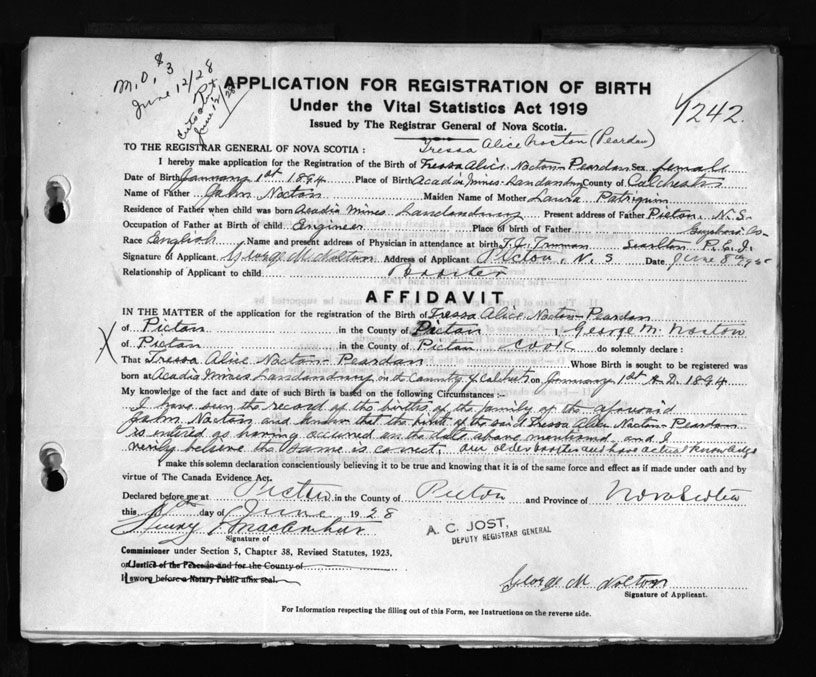 M.O. $3
June 12/28
June 12/28
APPLICATION FOR REGISTRATION OF BIRTH
Under the Vital Statistics Act 1919
Issued by The Registrar General of Nova Scotia.
4242.
Tressa Alice Nocton (Peardon)
TO THE REGISTRAR GENERAL OF NOVA SCOTIA:
I hereby make application for the Registration of the Birth of Tressa Alice Nocton-Peardon Sex female
Date of Birth January 1st 1894 Place of Birth Acadia Mines-Londonderry County of Colchester
Name of Father John Nocton Maiden Name of Mother Laura Patriquin
Residence of Father when child was born Acadia Mines. Londonderry Present address of Father Pictou, N.S.
Occupation of Father at Birth of child Engineer Place of birth of Father Guysboro Co.
Race English Name and present address of Physician in attendance at birth Truman P.E.I.
Signature of Applicant George M. Nocton Address of Applicant Pictou, N.S Date June 8th
Relationship of Applicant to child
AFFIDAVIT
IN THE MATTER of the application for the registration of the Birth of Tressa Alice Nocton-Peardon
of Pictou in the County of Pictou I, George M. Nocton
X of Pictou in the County of Pictou cook do solemnly declare:
That Tressa Alice Nocton-Peardon Whose Birth is sought to be registered was
born at Acadia Mines Londonderry in the County of on January 1st A.D. 1894
My knowledge of the fact and date of such Birth is based on the following Circumstances :-
I have seen the record of the births of the family of the aforesaid
John Nocton and know that the birth of the said Tressa Alice Nocton-Peardon
is entered as having occurred on the date above mentioned and I
verily believe the same is correct. and have actual knowledge
I make this solemn declaration conscientiously believing it to be true and knowing that it is of the same force and effect as if made under oath and by
virtue of The Canada Evidence Act.
Declared before me at Pictou in the County of Pictou and Province of Nova Scotia
this 8th day of June 1928
Signature of
A. C. JOST,
DEPUTY REGISTRAR GENERAL
Commissioner under Section 5, Chapter 38, Revised Statutes, 1923.
or Justice of the Peace in and for the County of
If sworn before a Notary Public affix seal.
George M Nocton
Signature of Applicant.
For Information respecting the filling out of this Form, see Instructions on the reverse side.